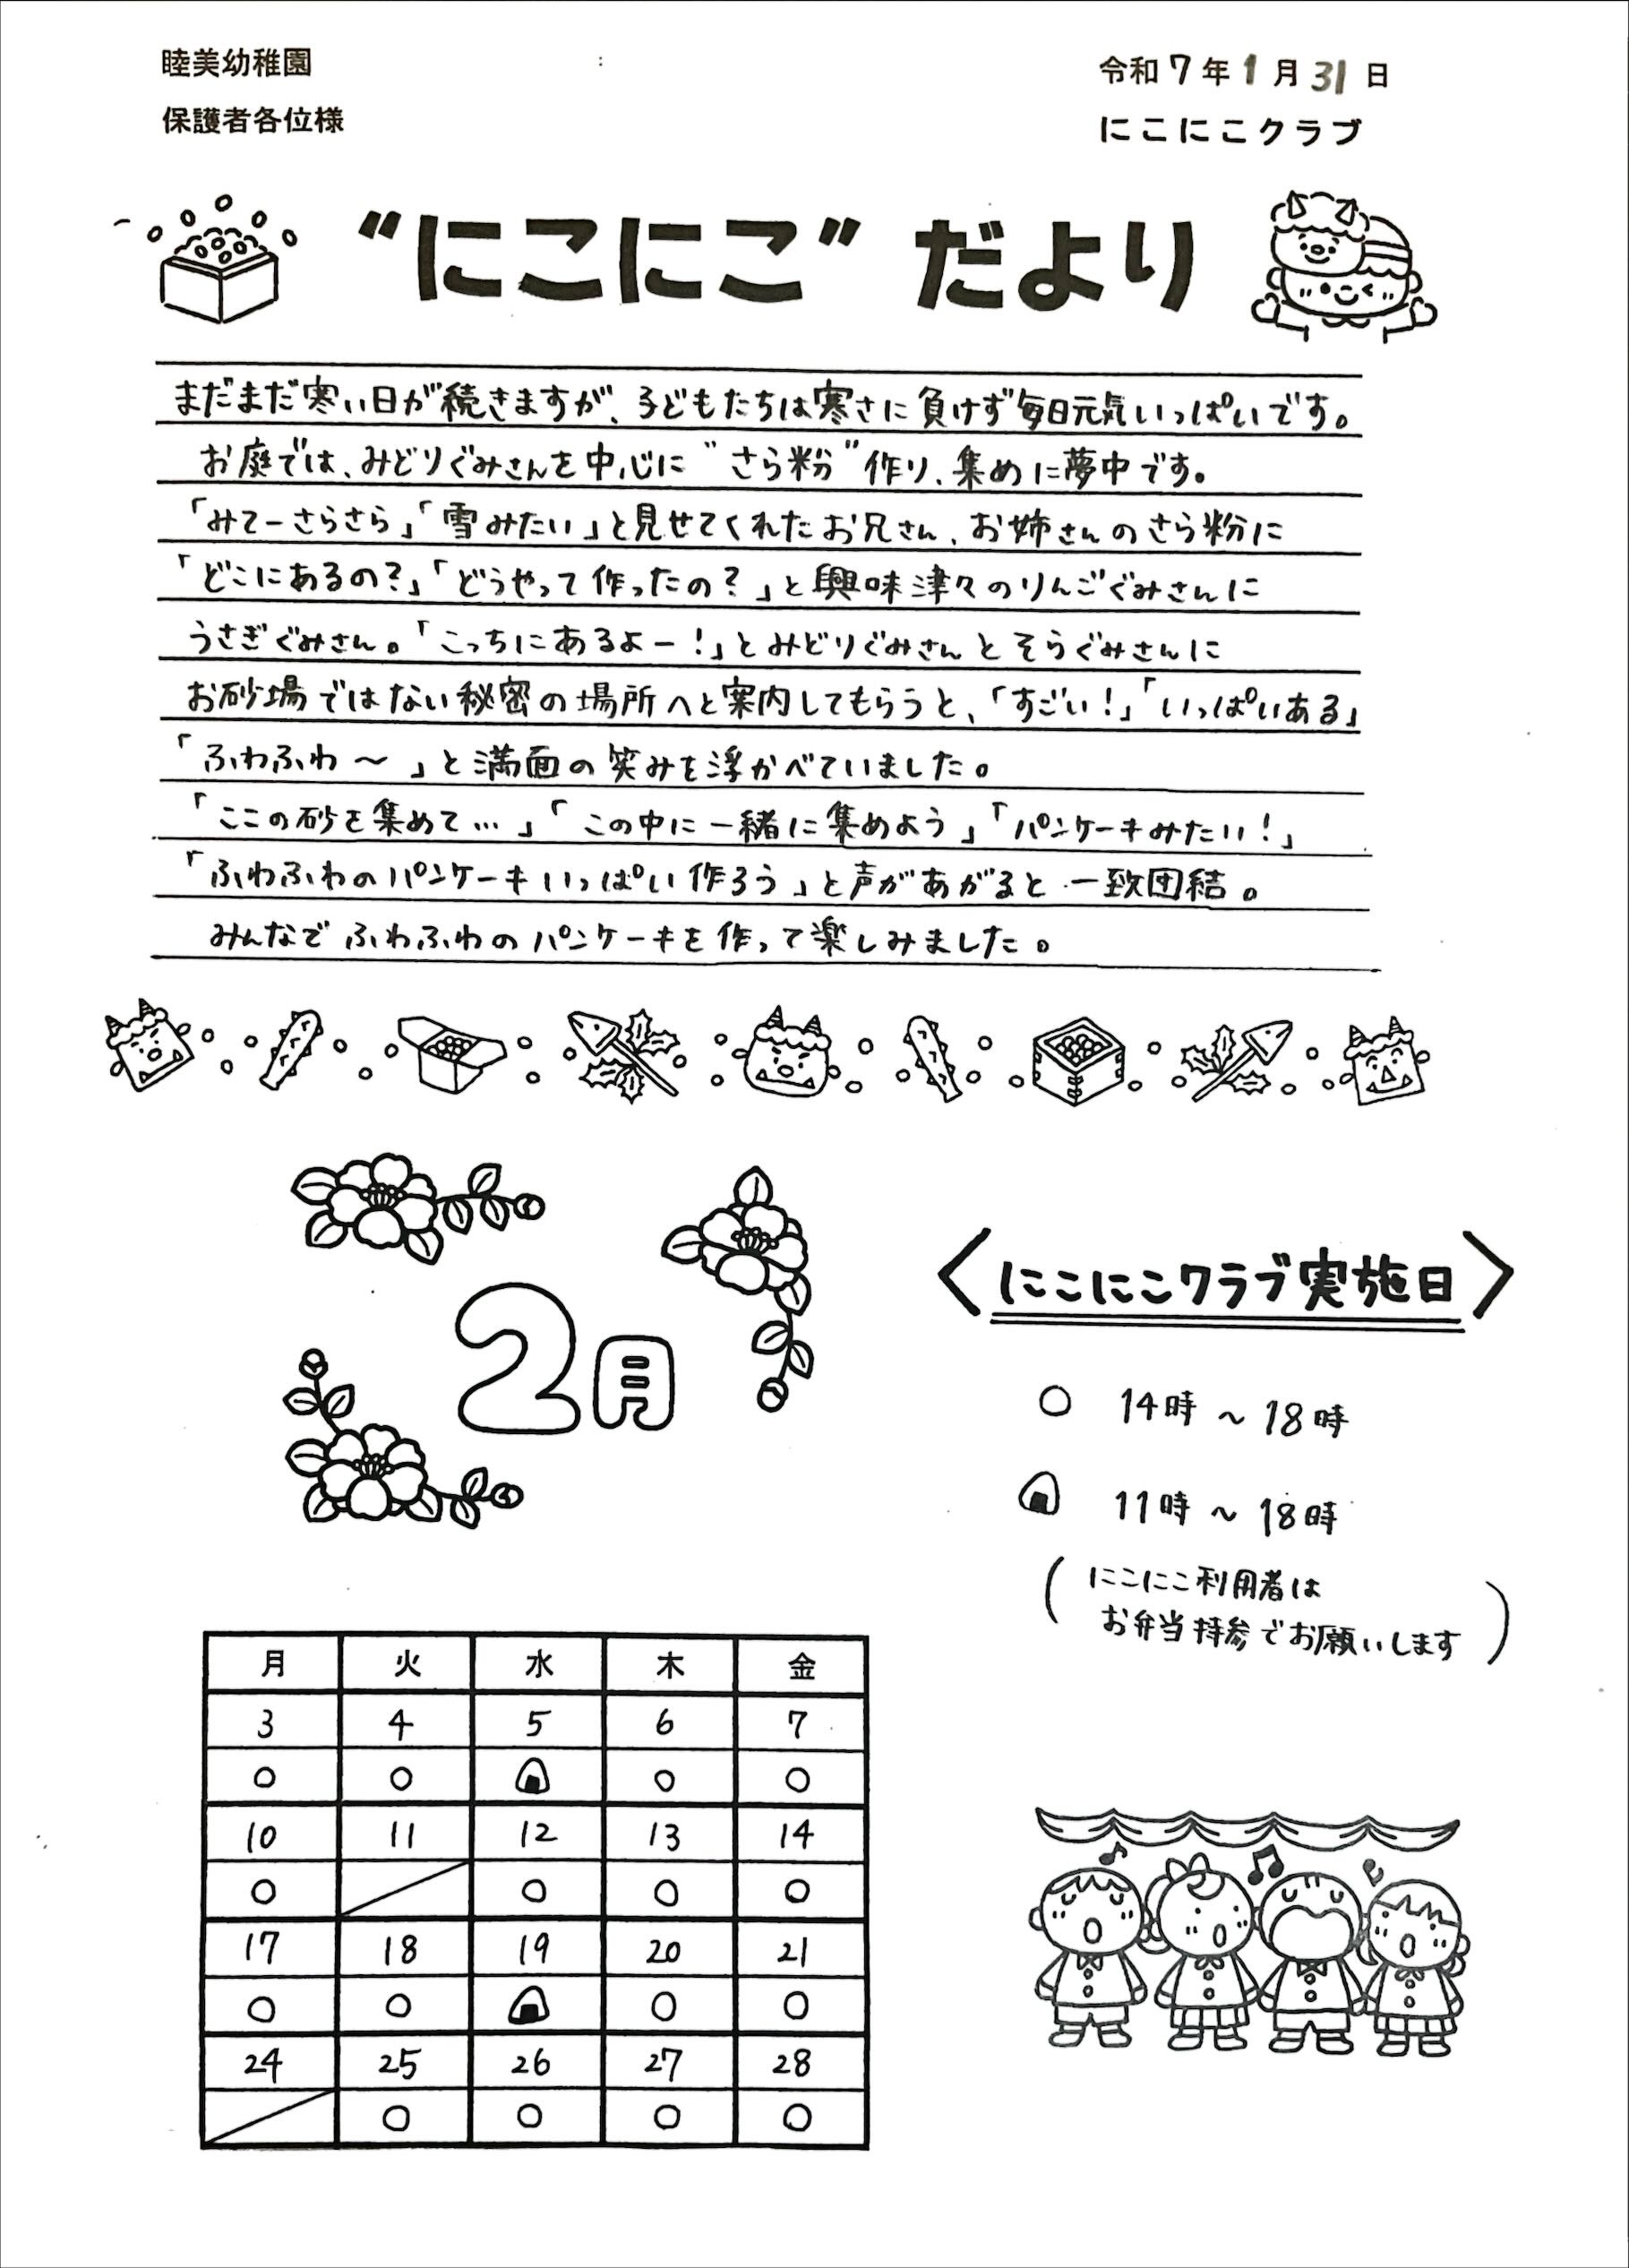 睦美幼稚園
保護者各位様
令和7年1月31日
にこにこクラブ
“にこにこ”だより
まだまだ寒い日が続きますが、子どもたちは寒さに負けず毎日元気いっぱいです。
お庭では、みどりぐみさんを中心に“さら粉”作り、集めに夢中です。
「みてーさらさら」「雪みたい」と見せてくれたお兄さん、お姉さんのさら粉に
「どこにあるの?」「どうやって作ったの?」と興味津々のりんごぐみさんに
うさぎぐみさん。「こっちにあるよー!」とみどりぐみさんとそらぐみさんに
お砂場ではない秘密の場所へと案内してもらうと、「すごい!」「いっぱいある」
「ふわふわ〜」と満面の笑みを浮かべていました。
「ここの砂を集めて…」「この中に一緒に集めよう」「パンケーキみたい!」
「ふわふわのパンケーキいっぱい作ろう」と声があがると一致団結。
みんなでふわふわのパンケーキを作って楽しみました。
2月
〈にこにこクラブ実施日〉
○ 14時〜18時
🍙 11時〜18時
(にこにこ利用者は
お弁当持参でお願いします)
月 火 水 木 金
3 4 5 6 7
○ ○ 🍙 ○ ○
10 11 12 13 14
○ ／ ○ ○ ○
17 18 19 20 21
○ ○ 🍙 ○ ○
24 25 26 27 28
／ ○ ○ ○ ○